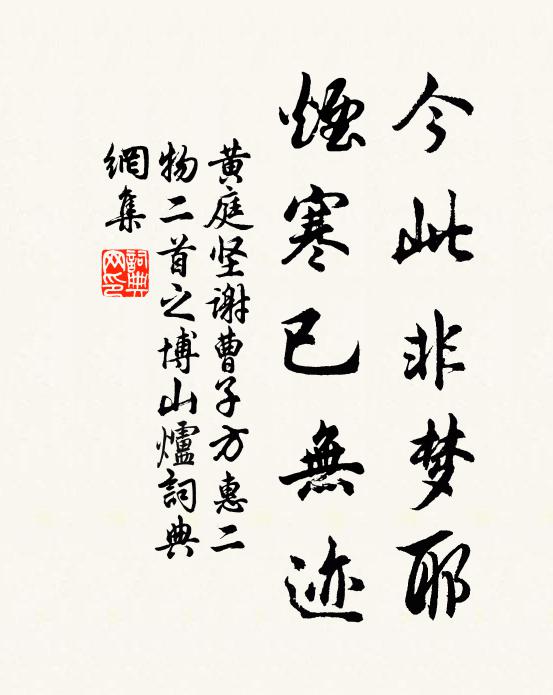 今此非梦耶
煙寒已無迹
黄庭坚谢曹子方惠二
物二首之博山爐詞典
網集
詞典
网印